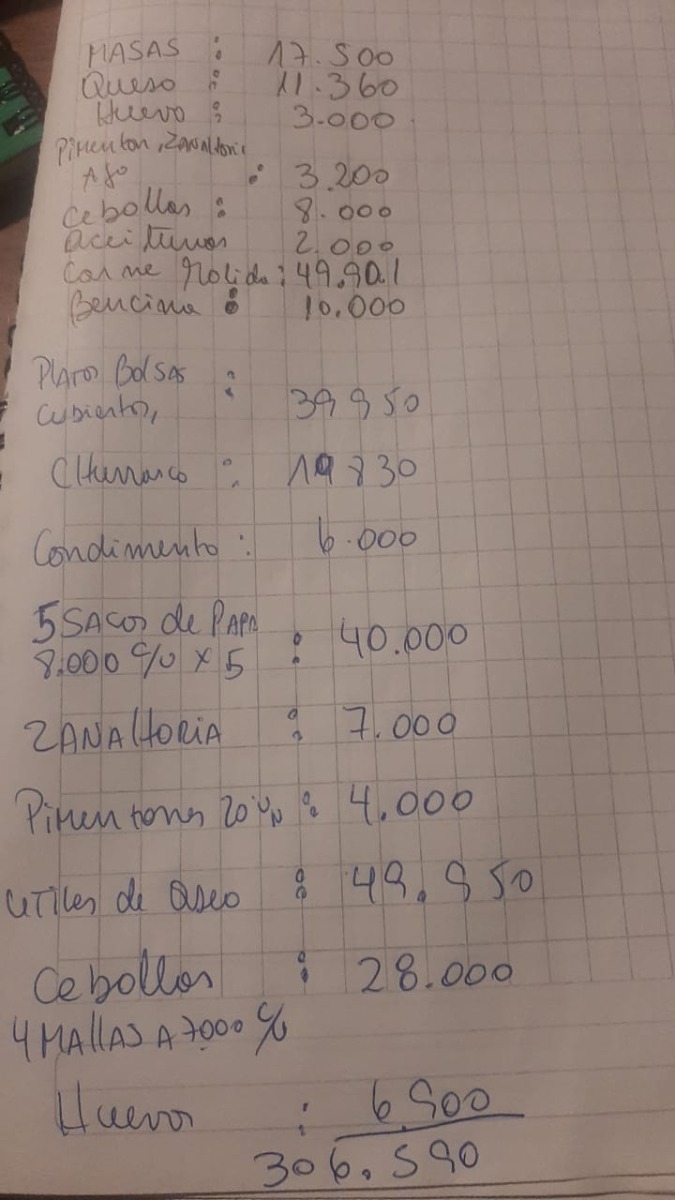 MASAS : 17.500
Queso : 11.360
Huevo : 3.000
Pimenton, Zanahoria
Ajo : 3.200
Cebollas : 8.000
Aceitunas 2.000
Carne Molida : 49.901
Bencina : 10.000
Platos Bolsas :
Cubiertos, 39950
CHurrasco : 19830
Condimento : 6.000
5 SACOS de PAPA
8.000 c/u x 5 : 40.000
ZANAHORIA : 7.000
Pimentones 20 UN : 4.000
UTILES de aseo : 49.950
Cebollas : 28.000
4 MALLAS A 7000 c/
Huevos : 6.900
306.590